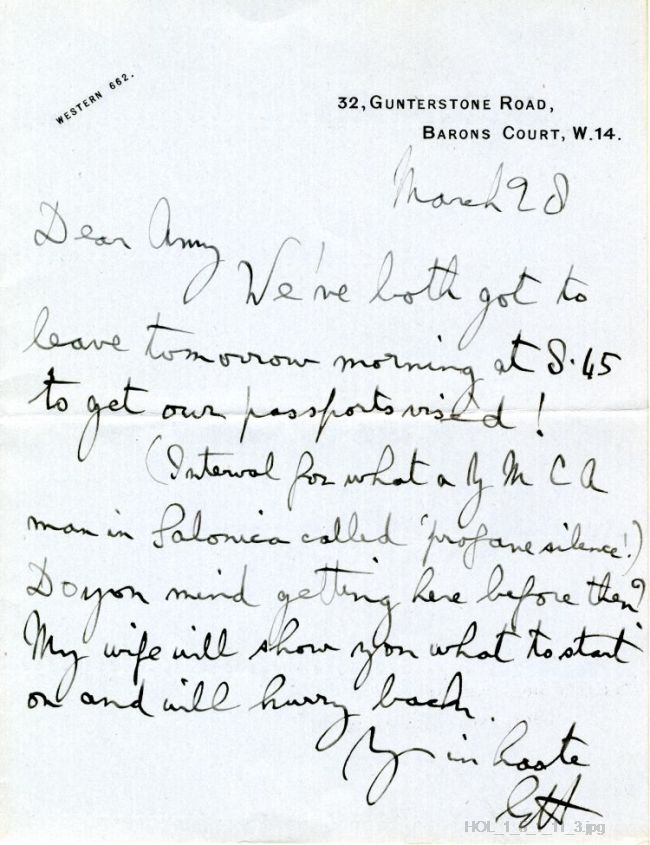 WESTERN 662.
32, GUNTERSTONE ROAD,
BARONS COURT, W.14.
March 28
Dear Amy
We've both got to
leave tomorrow morning at 8.45
to get our passports visé d!
(Interval for what a Y M C A
man in Salonica called 'profane silence'!)
Do you mind getting here before then?
My wife will show you what to start
on and will hurry back.
Yrs in haste
GH
HOL_1_6_1_11_3.jpg